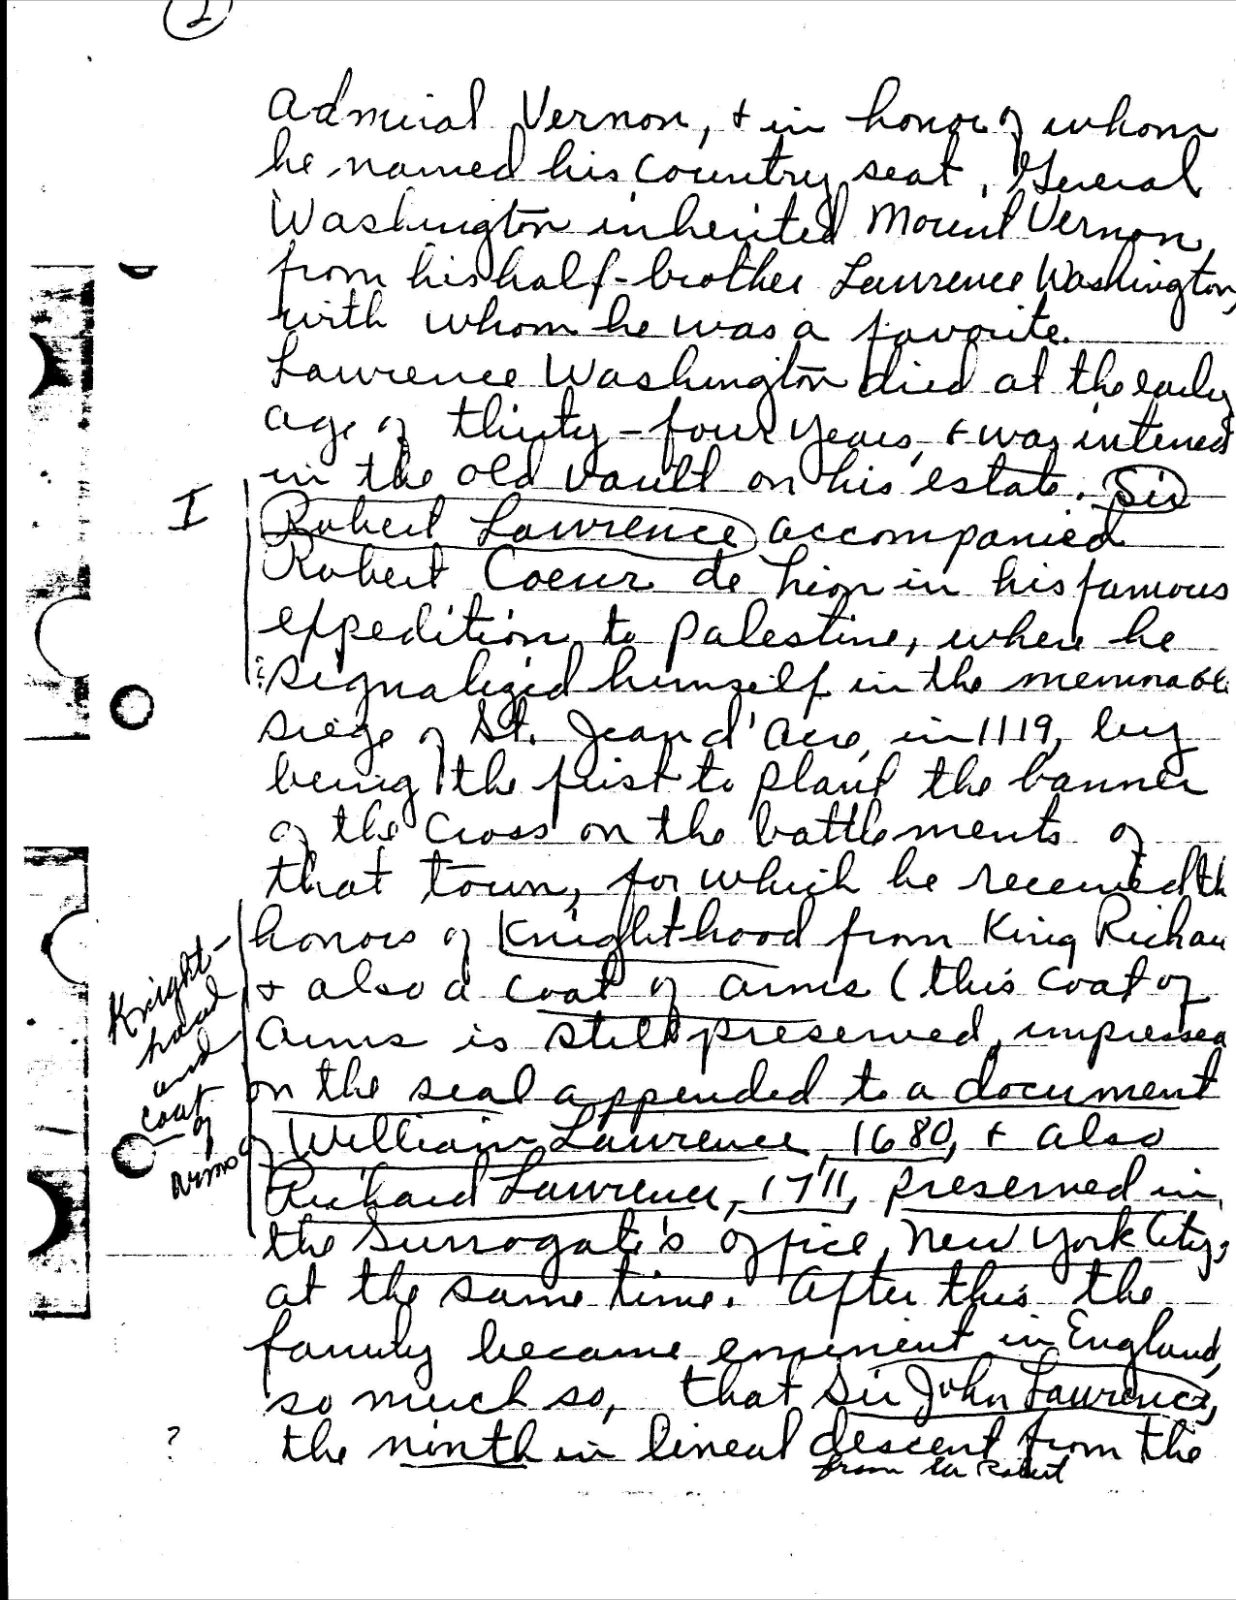 2
Admiral Vernon, & in honor of whom
he named his country seat. General
Washington inherited Mount Vernon,
from his half-brother Lawrence Washington,
with whom he was a favorite.
Lawrence Washington died at the early
age of thirty-four years, & was interred
in the old vault on his estate. Sir
I
Robert Lawrence accompanied
Robert Coeur de Lion in his famous
expedition to Palestine, where he
signalized himself in the memorable
siege of St. Jean d'Acre, in 1119, by
being the first to plant the banner
of the Cross on the battlements of
that town, for which he received th
honors of Knighthood from King Richar
& also a coat of arms (this coat of
Arms is still preserved, impressed
on the seal appended to a document
of William Lawrence, 1680, & also
Richard Lawrence, 1711, preserved in
the Surrogate's office, New York City,
at the same time. After this the
family became eminent in England,
so much so, that Sir John Lawrence,
? the ninth in lineal descent from the
from Sir Robert
Knight-
hood
and
coat
of
arms